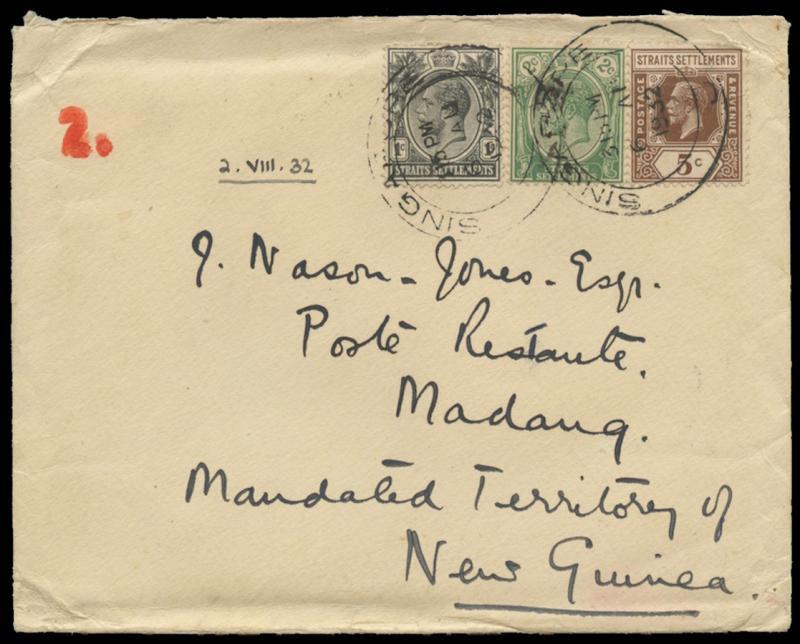 2c 2c
STRAITS SETTLEMENTS
POSTAGE
& REVENUE
1c 1c
STRAITS SETTLEMENTS
5c
SINGAPORE
SINGAPORE
PM
AU
1932
2.
2. VIII. 32
J. Nason-Jones-Esqr.
Poste Restante.
Madang.
Mandated Territory of
New Guinea.